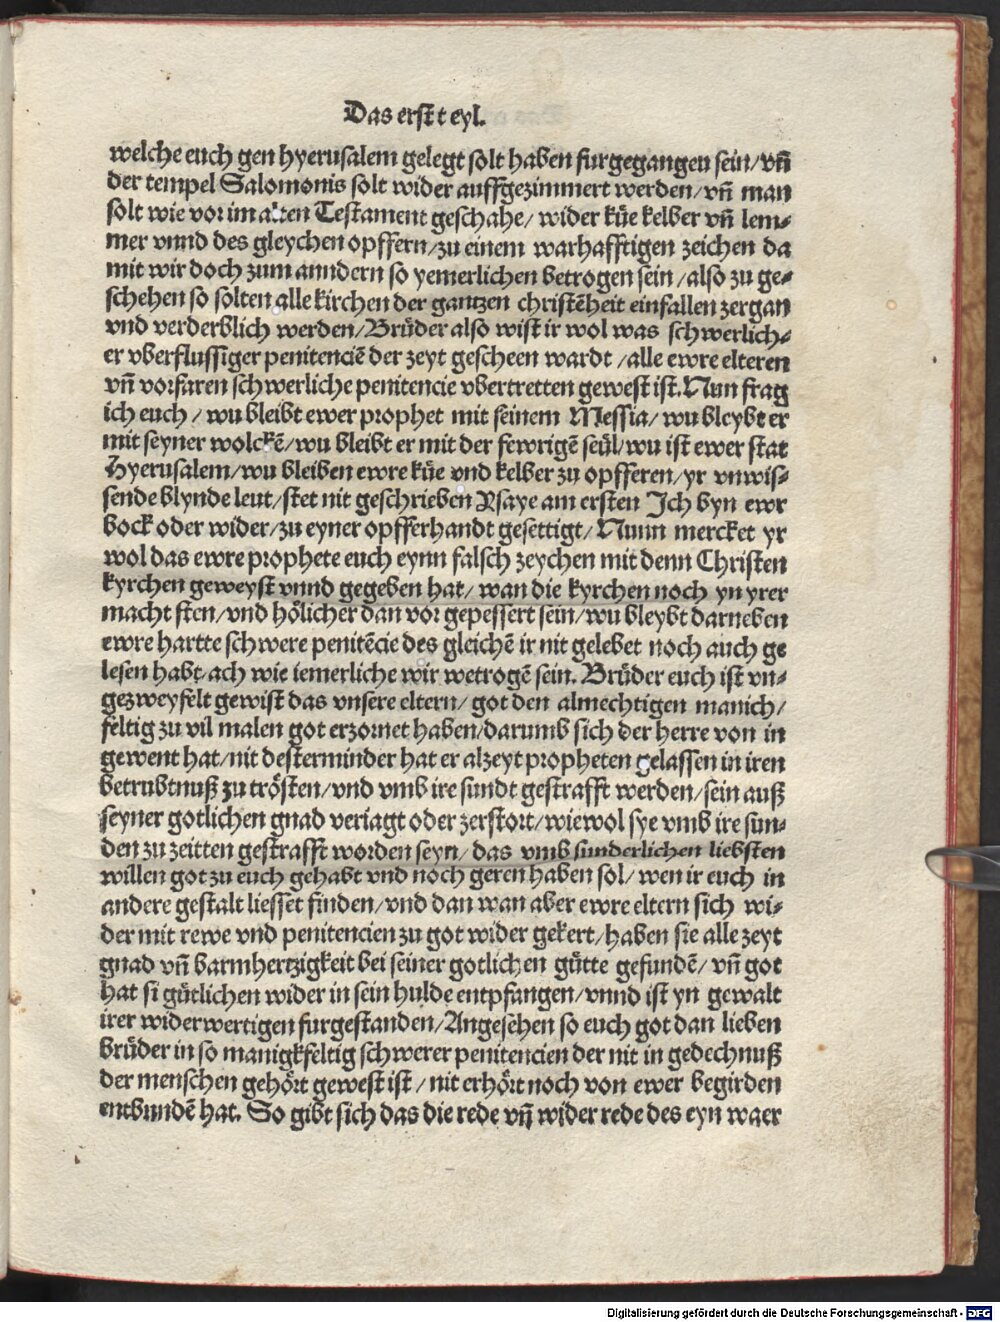 Das erst teyl.
welche euch gen hyerusalem gelegt solt haben furgegangen sein/vñ
der tempel Salomonis solt wider auffgezimmert werden/vñ man
solt wie vor im alten Testament geschahe/ wider küe kelber vñ lem⸗
mer vnnd des gleychen opffern/zu einem warhafftigen zeichen da
mit wir doch zum anndern so yemerlichen betrogen sein/also zu ge⸗
schehen so solten alle kirchen der gantzen christēheit einfallen zergan
vnd verderblich werden/Brüder also wist ir wol was schwerlich⸗
er vberflussiger penitenciē der zeyt gescheen wardt/alle ewre elteren
vñ vorfaren schwerliche penitencie vbertretten gewest ist. Nun frag
ich euch/ wu bleibt ewer prophet mit seinem Messia/ wu bleybt er
mit seyner wolckē/wu bleibt er mit der fewrigē seül/wu ist ewer stat
Hyerusalem/wu bleiben ewre küe vnd kelber zu opfferen/yr vnwis⸗
sende blynde leut/stet nit geschrieben Ysaye am ersten Ich byn ewr
bock oder wider/zu eyner opfferhandt gesettigt/ Nunn mercket yr
wol das ewre prophete euch eynn falsch zeychen mit denn Christen
kyrchen geweyst vnnd gegeben hat/ wan die kyrchen noch yn yrer
macht sten/vnd hölicher dan vor gepessert sein/wu bleybt darneben
ewre hartte schwere penitēcie des gleichē ir nit gelebet noch auch ge
lesen habt/ach wie iemerliche wir wetrogē sein. Brüder euch ist vn⸗
gezweyfelt gewist das vnsere eltern/ got den almechtigen manich/
feltig zu vil malen got erzornet haben/darumb sich der herre von in
gewent hat/nit desterminder hat er alzeyt propheten gelassen in iren
betrubtnuß zu trösten/vnd vmb ire sundt gestrafft werden/sein auß
seyner gotlichen gnad veriagt oder zerstort/wiewol sye vmb ire sun⸗
den zu zeitten gestrafft worden seyn/ das vmb sunderlichen liebsten
willen got zu euch gehabt vnd noch geren haben sol/ wen ir euch in
andere gestalt liesset finden/vnd dan wan aber ewre eltern sich wi⸗
der mit rewe vnd penitencien zu got wider gekert/haben sie alle zeyt
gnad vñ barmhertzigkeit bei seiner gotlichen gütte gefundē/ vñ got
hat si gütlichen wider in sein hulde entpfangen/vnnd ist yn gewalt
irer widerwertigen furgestanden/Angesehen so euch got dan lieben
brüder in so manigkfeltig schwerer penitencien der nit in gedechnuß
der menschen gehört gewest ist/ nit erhört noch von ewer begirden
entbundē hat. So gibt sich das die rede vñ wider rede des eyn waer
Digitalisierung gefördert durch die Deutsche Forschungsgemeinschaft - DFG